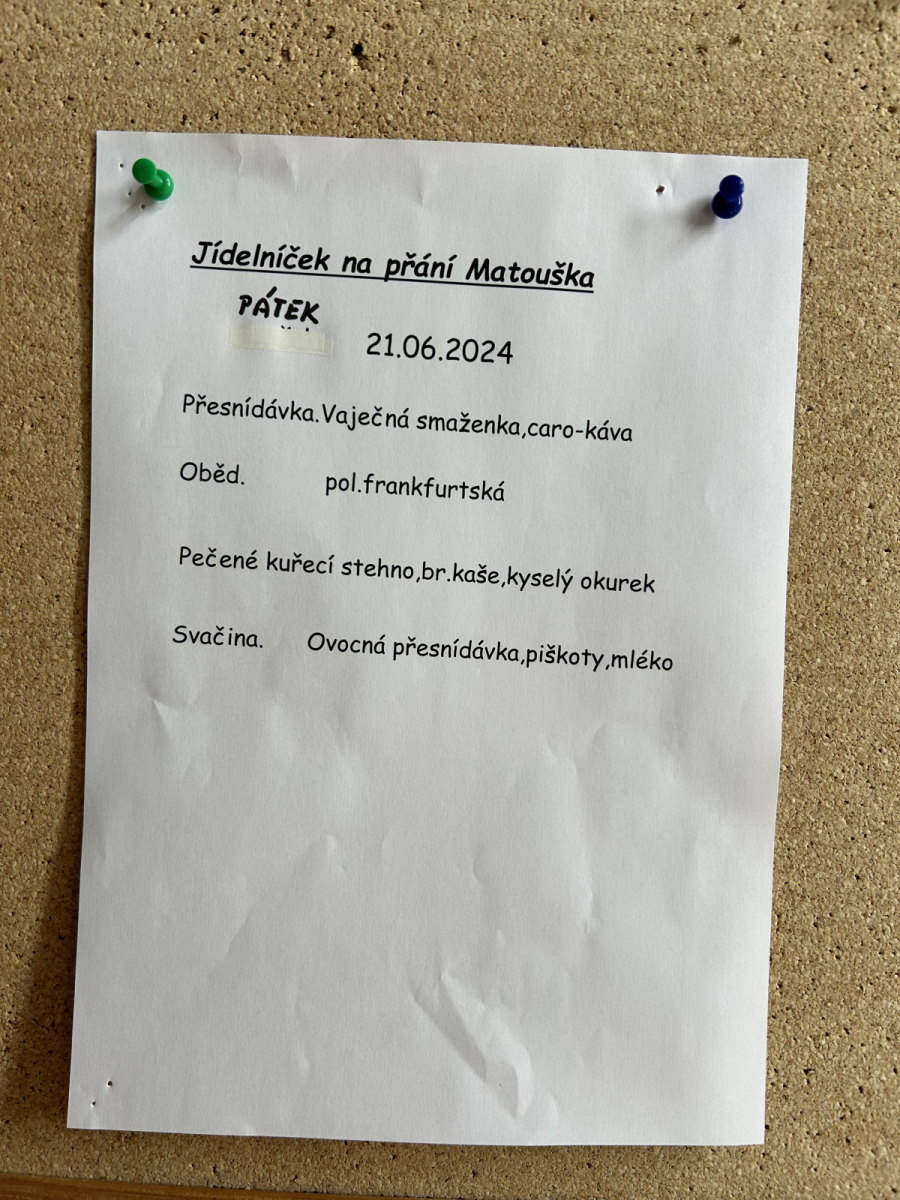 Jídelníček na přání Matouška
PÁTEK
21.06.2024
Přesnídávka.Vaječná smaženka,caro-káva
Oběd. pol.frankfurtská
Pečené kuřecí stehno,br.kaše,kyselý okurek
Svačina. Ovocná přesnídávka,piškoty,mléko